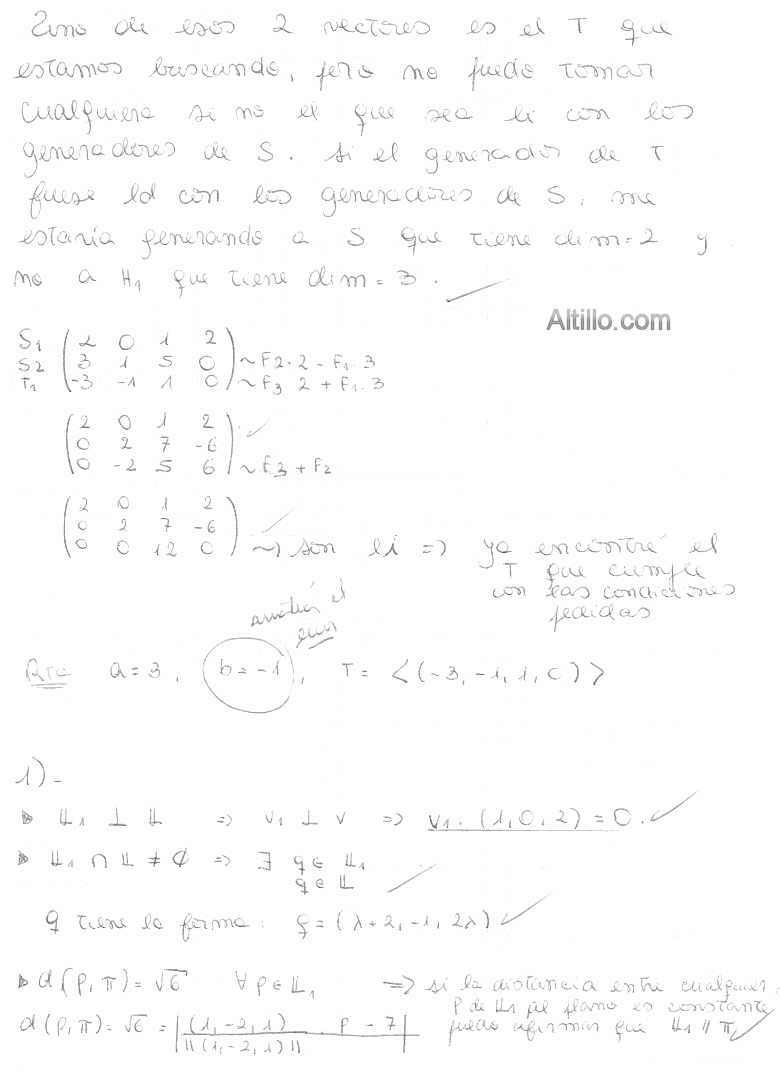 Uno de esos 2 vectores es el T que
estamos buscando, pero no puedo tomar
cualquiera si no el que sea li con los
generadores de S. Si el generador de T
fuese ld con los generadores de S, me
estaría generando a S que tiene dim=2 y
no a H1 que tiene dim=3.
Altillo.com
S1 ( 2 0 1 2 )
S2 ( 3 1 5 0 ) ~ F2·2 - F1·3
T1 ( -3 -1 1 0 ) ~ F3 2 + F1·3
( 2 0 1 2 )
( 0 2 7 -6 )
( 0 -2 5 6 ) ~ F3 + F2
( 2 0 1 2 )
( 0 2 7 -6 )
( 0 0 12 0 ) ~> son li => ya encontré el
T que cumple
con las condiciones
pedidas
el
Rta a=3, b=-1, T= <(-3,-1,1,0)>
1)-
▷ L1 ⊥ L => v1 ⊥ v => v1·(1,0,2)=0. ✓
▷ L1 ∩ L ≠ ∅ => ∃ q∈ L1
q∈ L
q tiene la forma: q=(λ+2,-1,2λ) ✓
▷ d(P,π)=√6 ∀ p∈L1 => si la distancia entre cualquier
P de L1 al plano es constante
d(P,π)=√6 = |(1,-2,1) · P - 7| / ||(1,-2,1)|| puedo afirmar que L1 // π ✓